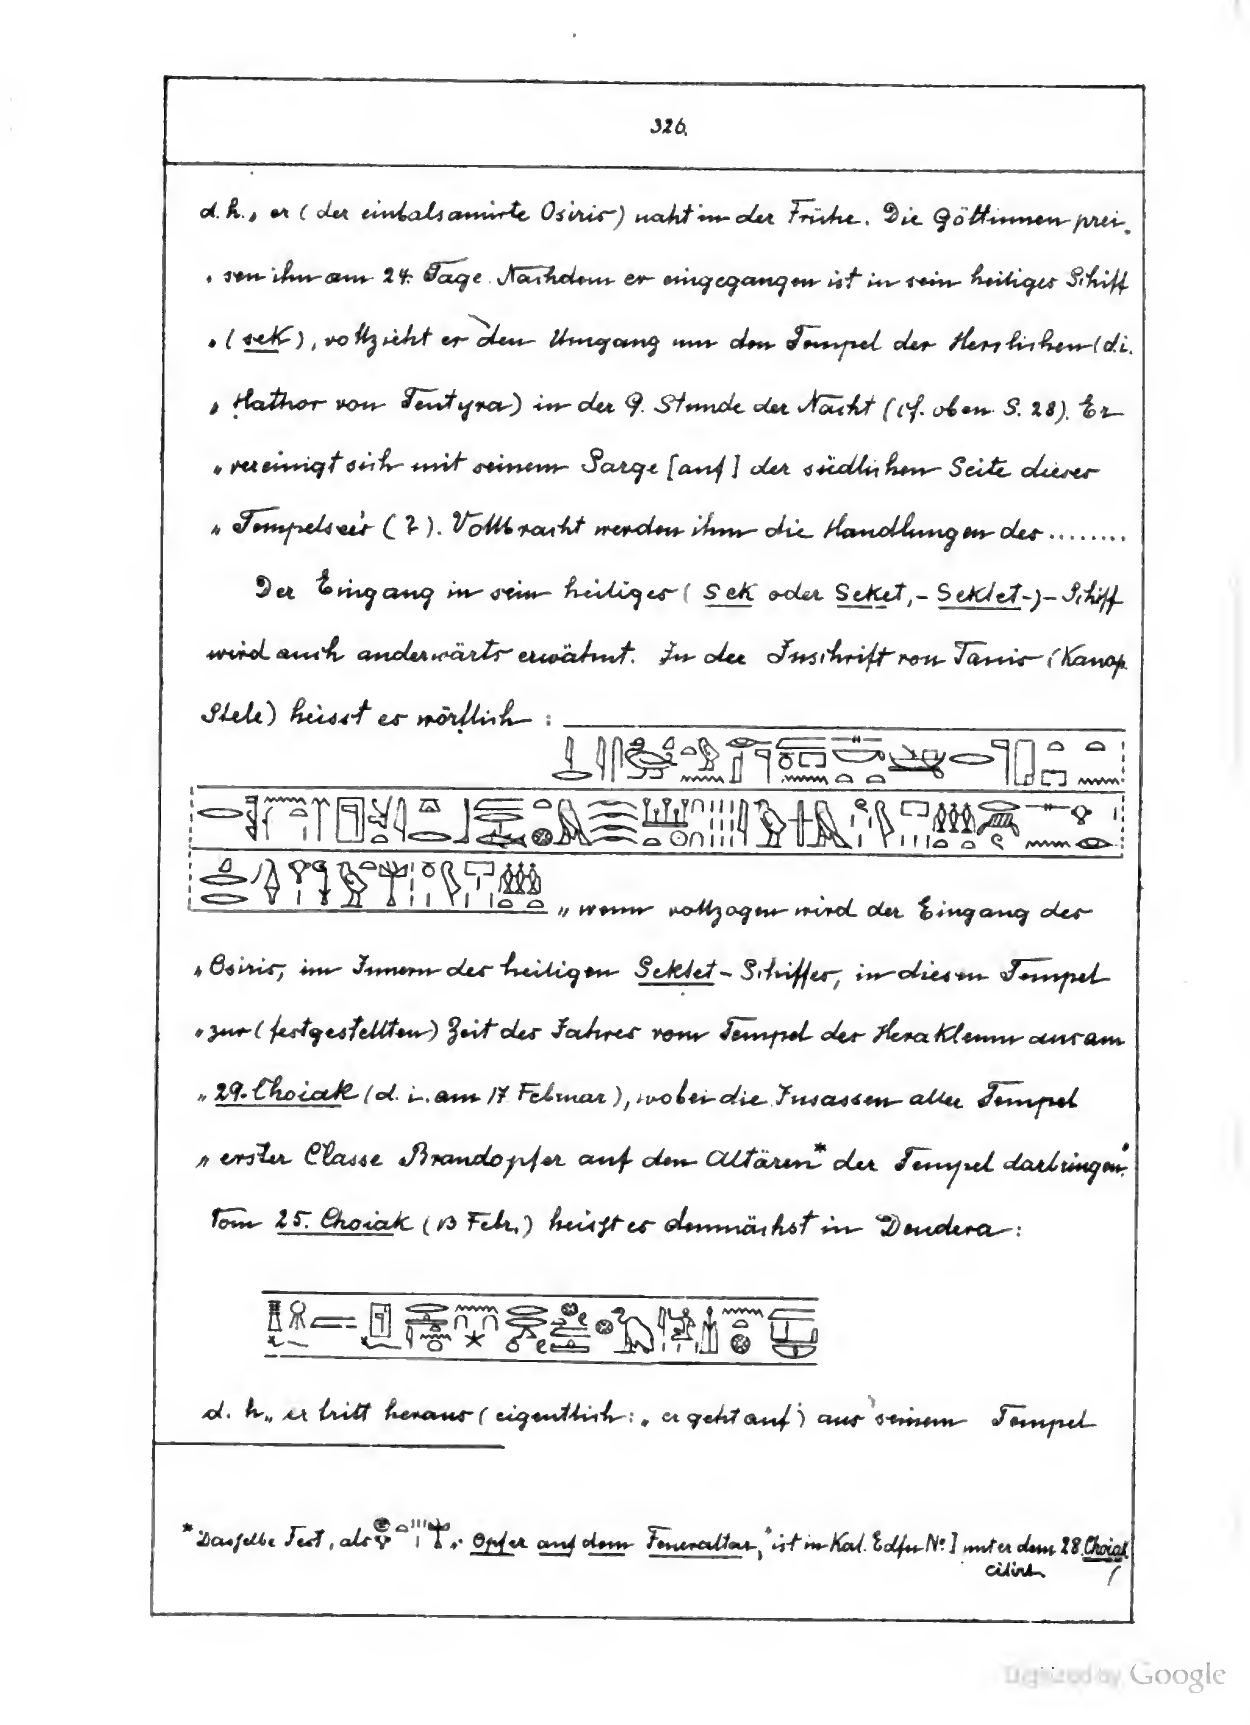 326.
d. h. „er (der einbalsamirte Osiris) naht in der Frühe. Die Göttinnen prei-
„sen ihn am 24. Tage. Nachdem er eingegangen ist in sein heiliges Schiff
„(sek), vollzieht er den Umgang um den Tempel der Herrlichen (d. i.
„Hathor von Tentyra) in der 9. Stunde der Nacht (cf. oben S. 28). Er
„vereinigt sich mit seinem Sarge [auf] der südlichen Seite dieses
„Tempels (?). Vollbracht werden ihm die Handlungen des ........
Der Eingang in sein heiliges (Sek oder Seket,- Sektet-)-Schiff
wird auch anderwärts erwähnt. In der Inschrift von Tanis (Kanop.
Stele) heisst es wörtlich :
„wenn vollzogen wird der Eingang des
„Osiris, im Innern des heiligen Sektet-Schiffes, in diesen Tempel
„zur (festgestellten) Zeit des Jahres vom Tempel des Herakleum aus am
„29. Choiak (d. i. am 17 Februar), wobei die Insassen aller Tempel
„erster Classe Brandopfer auf den Altären* der Tempel darbringen."
Vom 25. Choiak (13 Febr.) heisst es demnächst in Dendera :
d. h. „er tritt heraus (eigentlich: „er geht auf") aus seinem Tempel
* Dasselbe Fest, als „Opfer auf dem Feueraltar," ist in Kal. Edfu No I unter dem 28. Choiak
citirt.
Digitized by Google